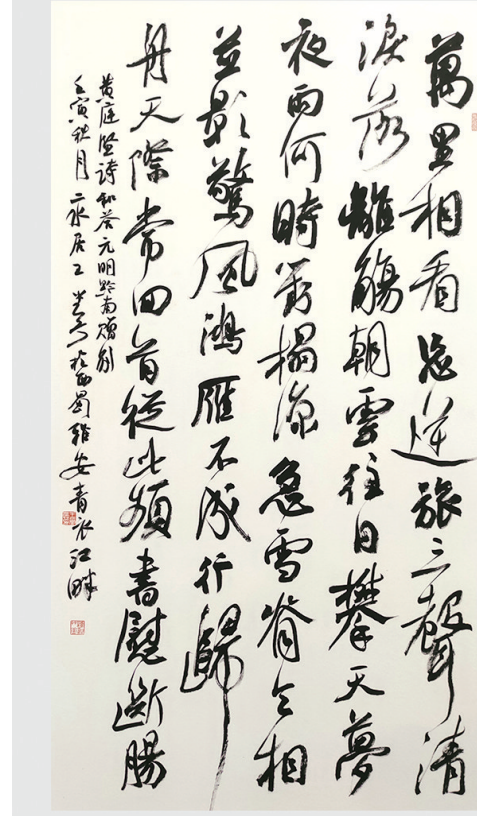 萬里相看忘逆旅三聲清
淚落離觴朝雲往日攀天夢
夜雨何時對榻涼急雪脊令相
並影驚風鴻雁不成行歸
舟天際常回首從此頻書慰斷腸
黄庭堅詩和答元明黔南贈別
壬寅秋月二水居於西蜀雅安青衣江畔